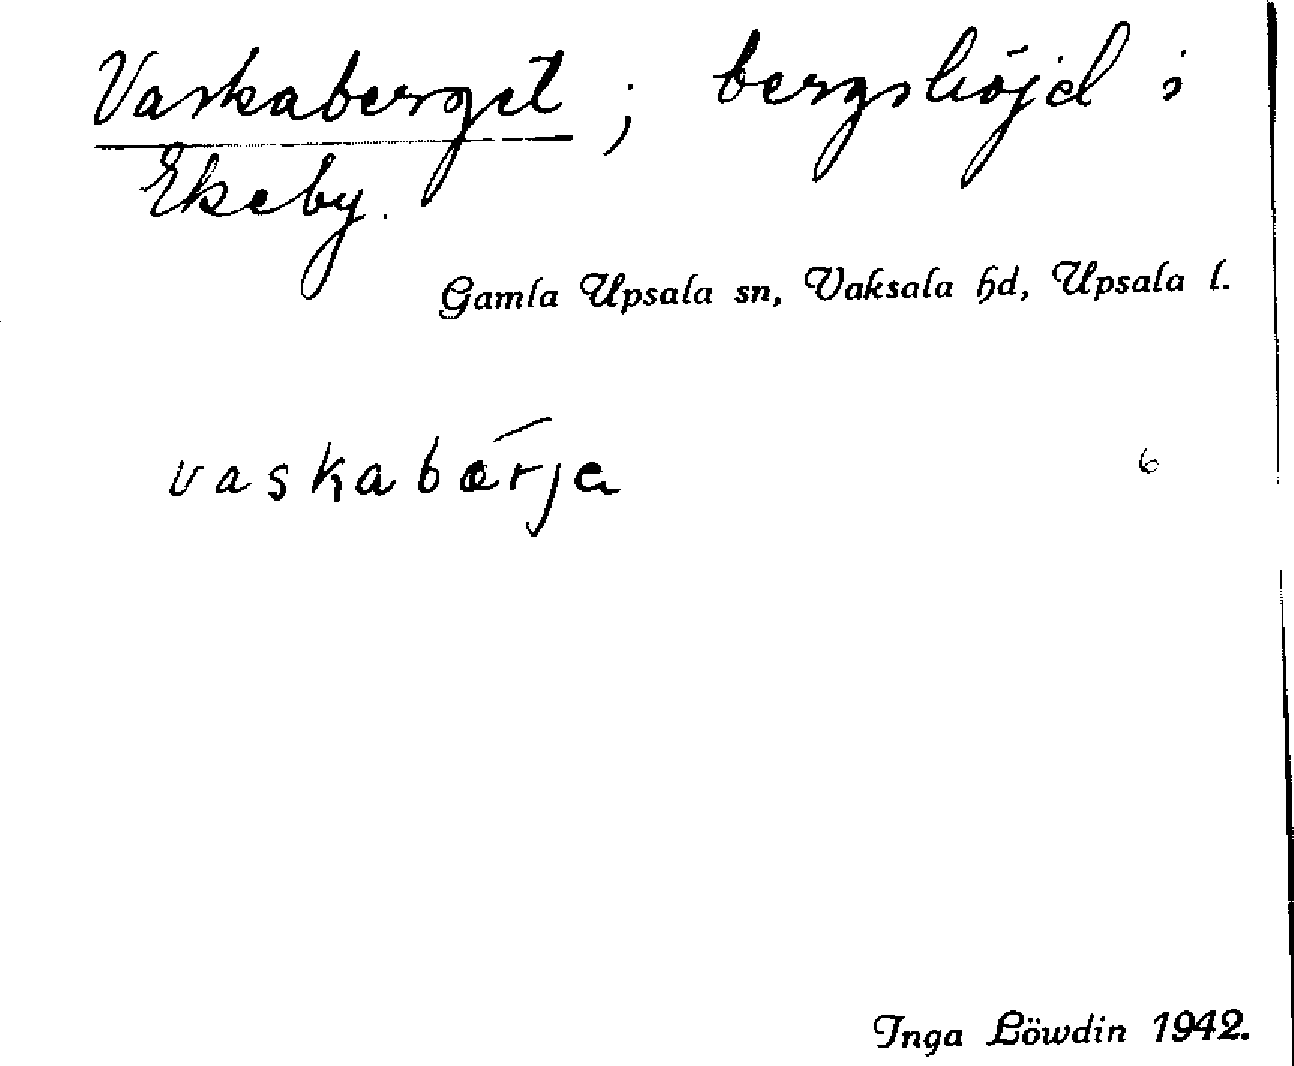 Vaskaberget ; bergshöjd i
Ekeby.
Gamla Upsala sn, Vaksala hd, Upsala l.
vaskabærja 6
Inga Löwdin 1942.